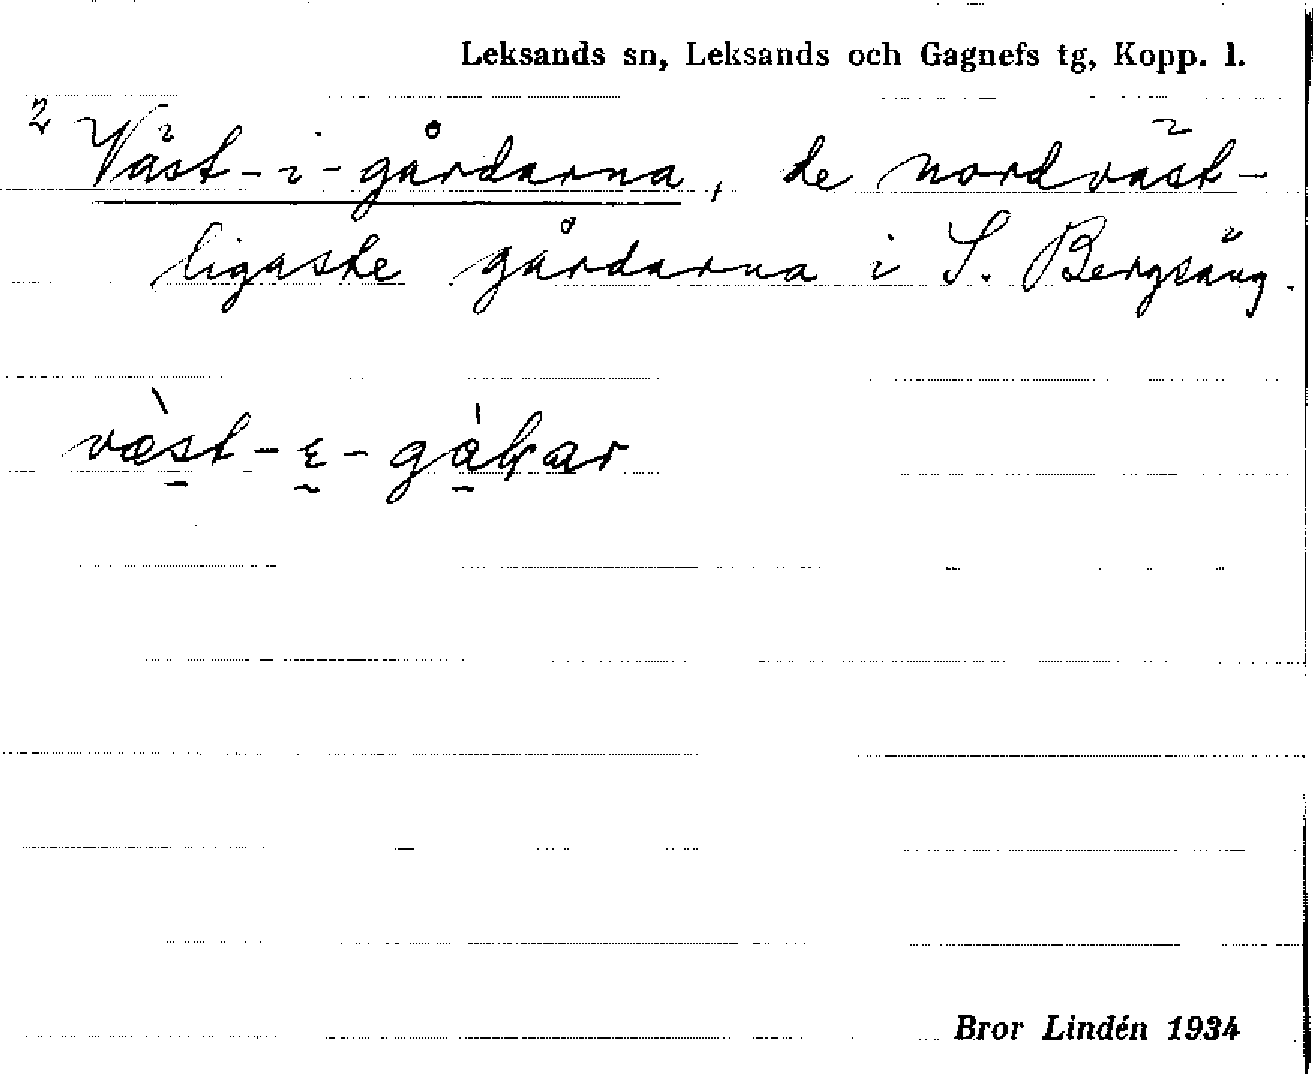 Leksands sn, Leksands och Gagnefs tg, Kopp. l.
2 Väst-i-gårdarna, de nordväst-
ligaste gårdarna i S. Bergsäng.
væ̀st-ε-gàɫar
Bror Lindén 1934